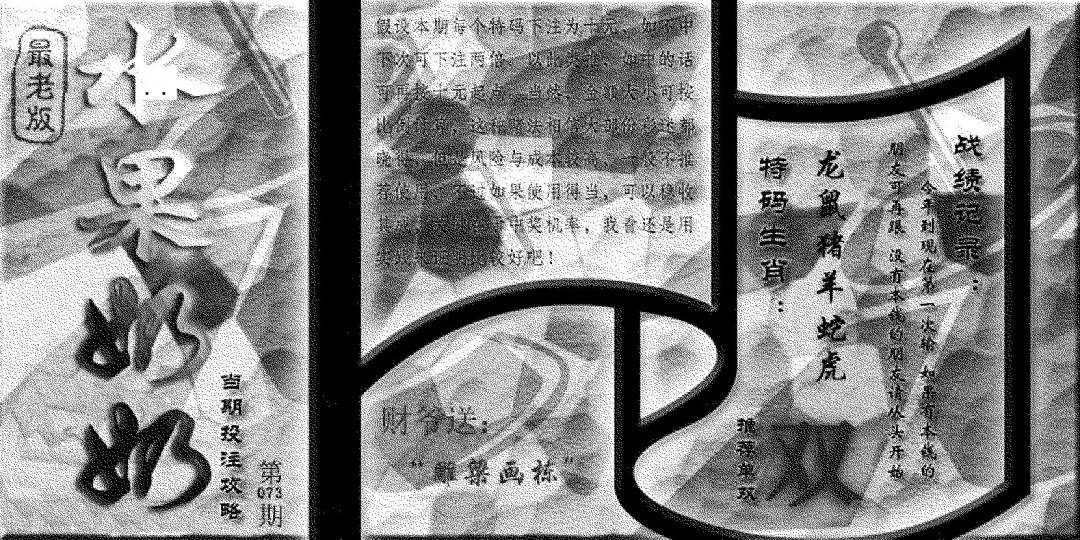 最老版
水果奶奶
当期投注攻略
第073期
假设本期每个特码下注为十元，如不中
下次可下注两倍，以此类推，如中的话
可再按十元起点，当然，金额大小可按
比例计算，这种赌法相信大部份彩迷都
晓得，但是风险与成本较高，一般不推
荐使用，不过如果使用得当，可以稳收
其成，
中奖机率，我看还是用
实战来证明比较好吧！
财爷送：
“雕梁画栋”
战绩记录：
今年到现在第一次输 如果有本钱的
朋友可再跟 没有本钱的朋友请从头开始
龙鼠猪羊蛇虎
特码生肖：
推荐单双
双